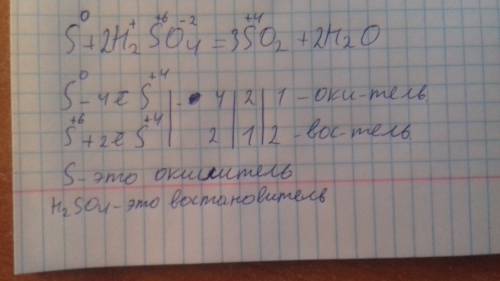 S⁰ + 2H₂⁺S⁺⁶O₄⁻² = 3S⁺⁴O₂ + 2H₂O
S⁰ - 4ē S⁺⁴ | 4 | 2 | 1 - оки-тель
S⁺⁶ + 2ē S⁺⁴ | 2 | 1 | 2 - вос-тель
S - это окислитель
H₂SO₄ - это востановитель